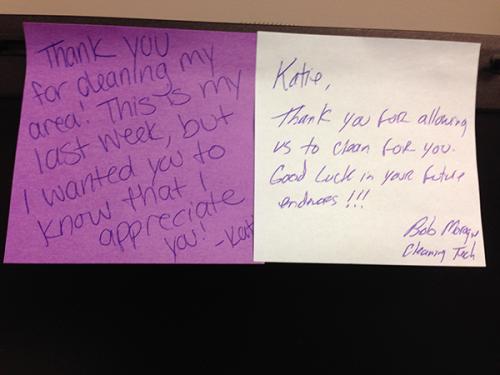 Thank you
for cleaning my
area! This is my
last week, but
I wanted you to
know that I
appreciate
you! -Kat
Katie,
Thank you for allowing
us to clean for you.
Good Luck in your future
!!!
Bob
Cleaning Tech